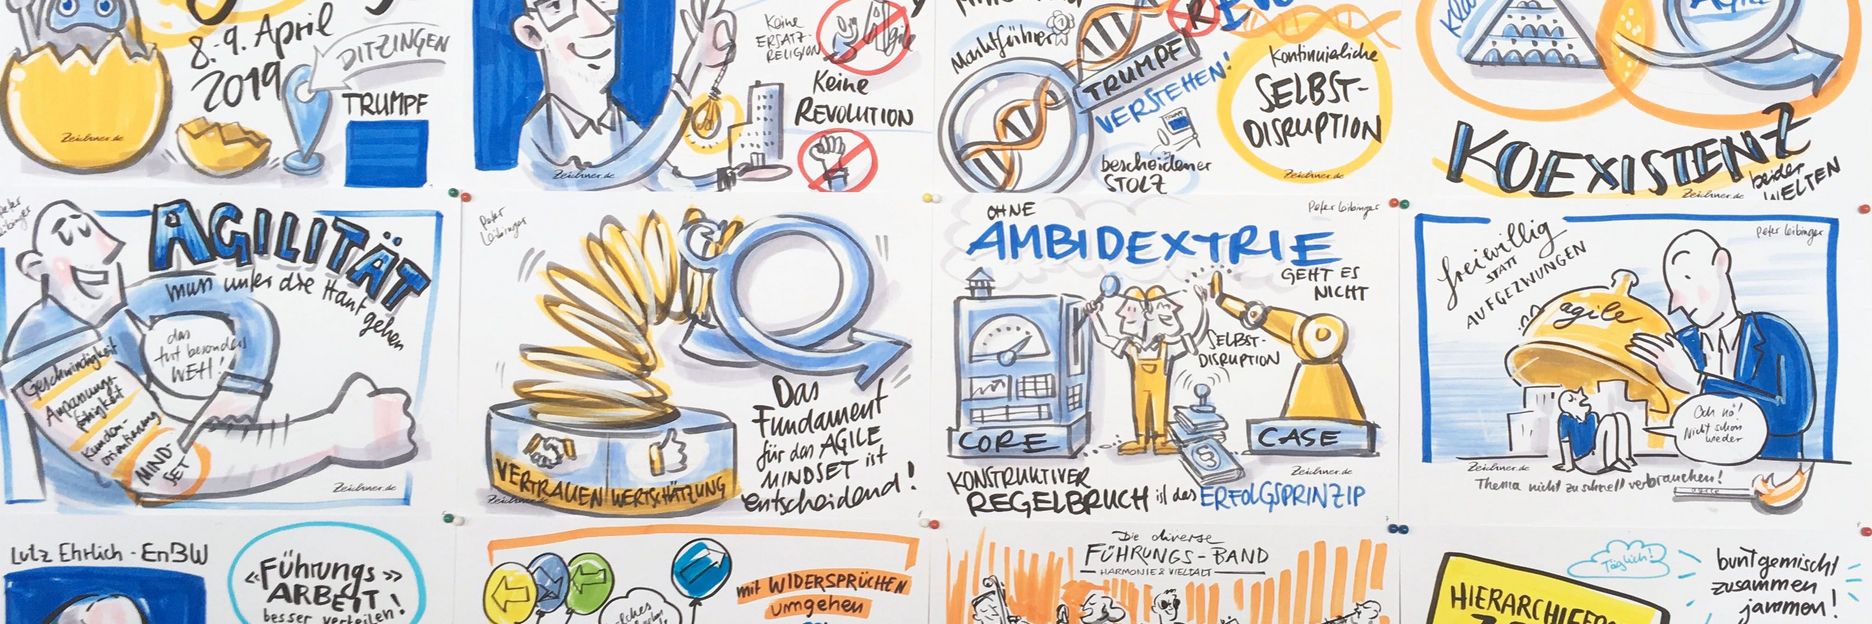 8.-9. April
2019
DITZINGEN
TRUMPF
Zeichner.de
Keine
ERSATZ-
RELIGION
Agile
Keine
REVOLUTION
Zeichner.de
Marktführer
TRUMPF
VERSTEHEN!
bescheidener
STOLZ
Kontinuierliche
SELBST-
DISRUPTION
Zeichner.de
KOEXISTENZ
beider
WELTEN
Zeichner.de
Peter
Leibinger
AGILITÄT
muss unter die Haut gehen
das
tut besonders
WEH!
Geschwindigkeit
Anpassungs-
fähigkeit
Kunden-
orientierung
MIND
SET
Zeichner.de
Peter
Leibinger
VERTRAUEN
WERTSCHÄTZUNG
Zeichner.de
Das
Fundament
für das AGILE
MINDSET ist
entscheidend!
Peter Leibinger
OHNE
AMBIDEXTRIE
GEHT ES
NICHT
SELBST-
DISRUPTION
CORE
CASE
§
Zeichner.de
KONSTRUKTIVER
REGELBRUCH ist das ERFOLGSPRINZIP
Peter Leibinger
freiwillig
STATT
AUFGEZWUNGEN
agile
Och nö!
Nicht schon
wieder
Zeichner.de
Thema nicht zu schnell verbrauchen!
Lutz Ehrlich - EnBW
«Führungs»
ARBEIT!
besser verteilen!
mit WIDERSPRÜCHEN
umgehen
Die diverse
FÜHRUNGS-BAND
HARMONIE & VIELFALT
Täglich!
buntgemischt
zusammen
jammen!